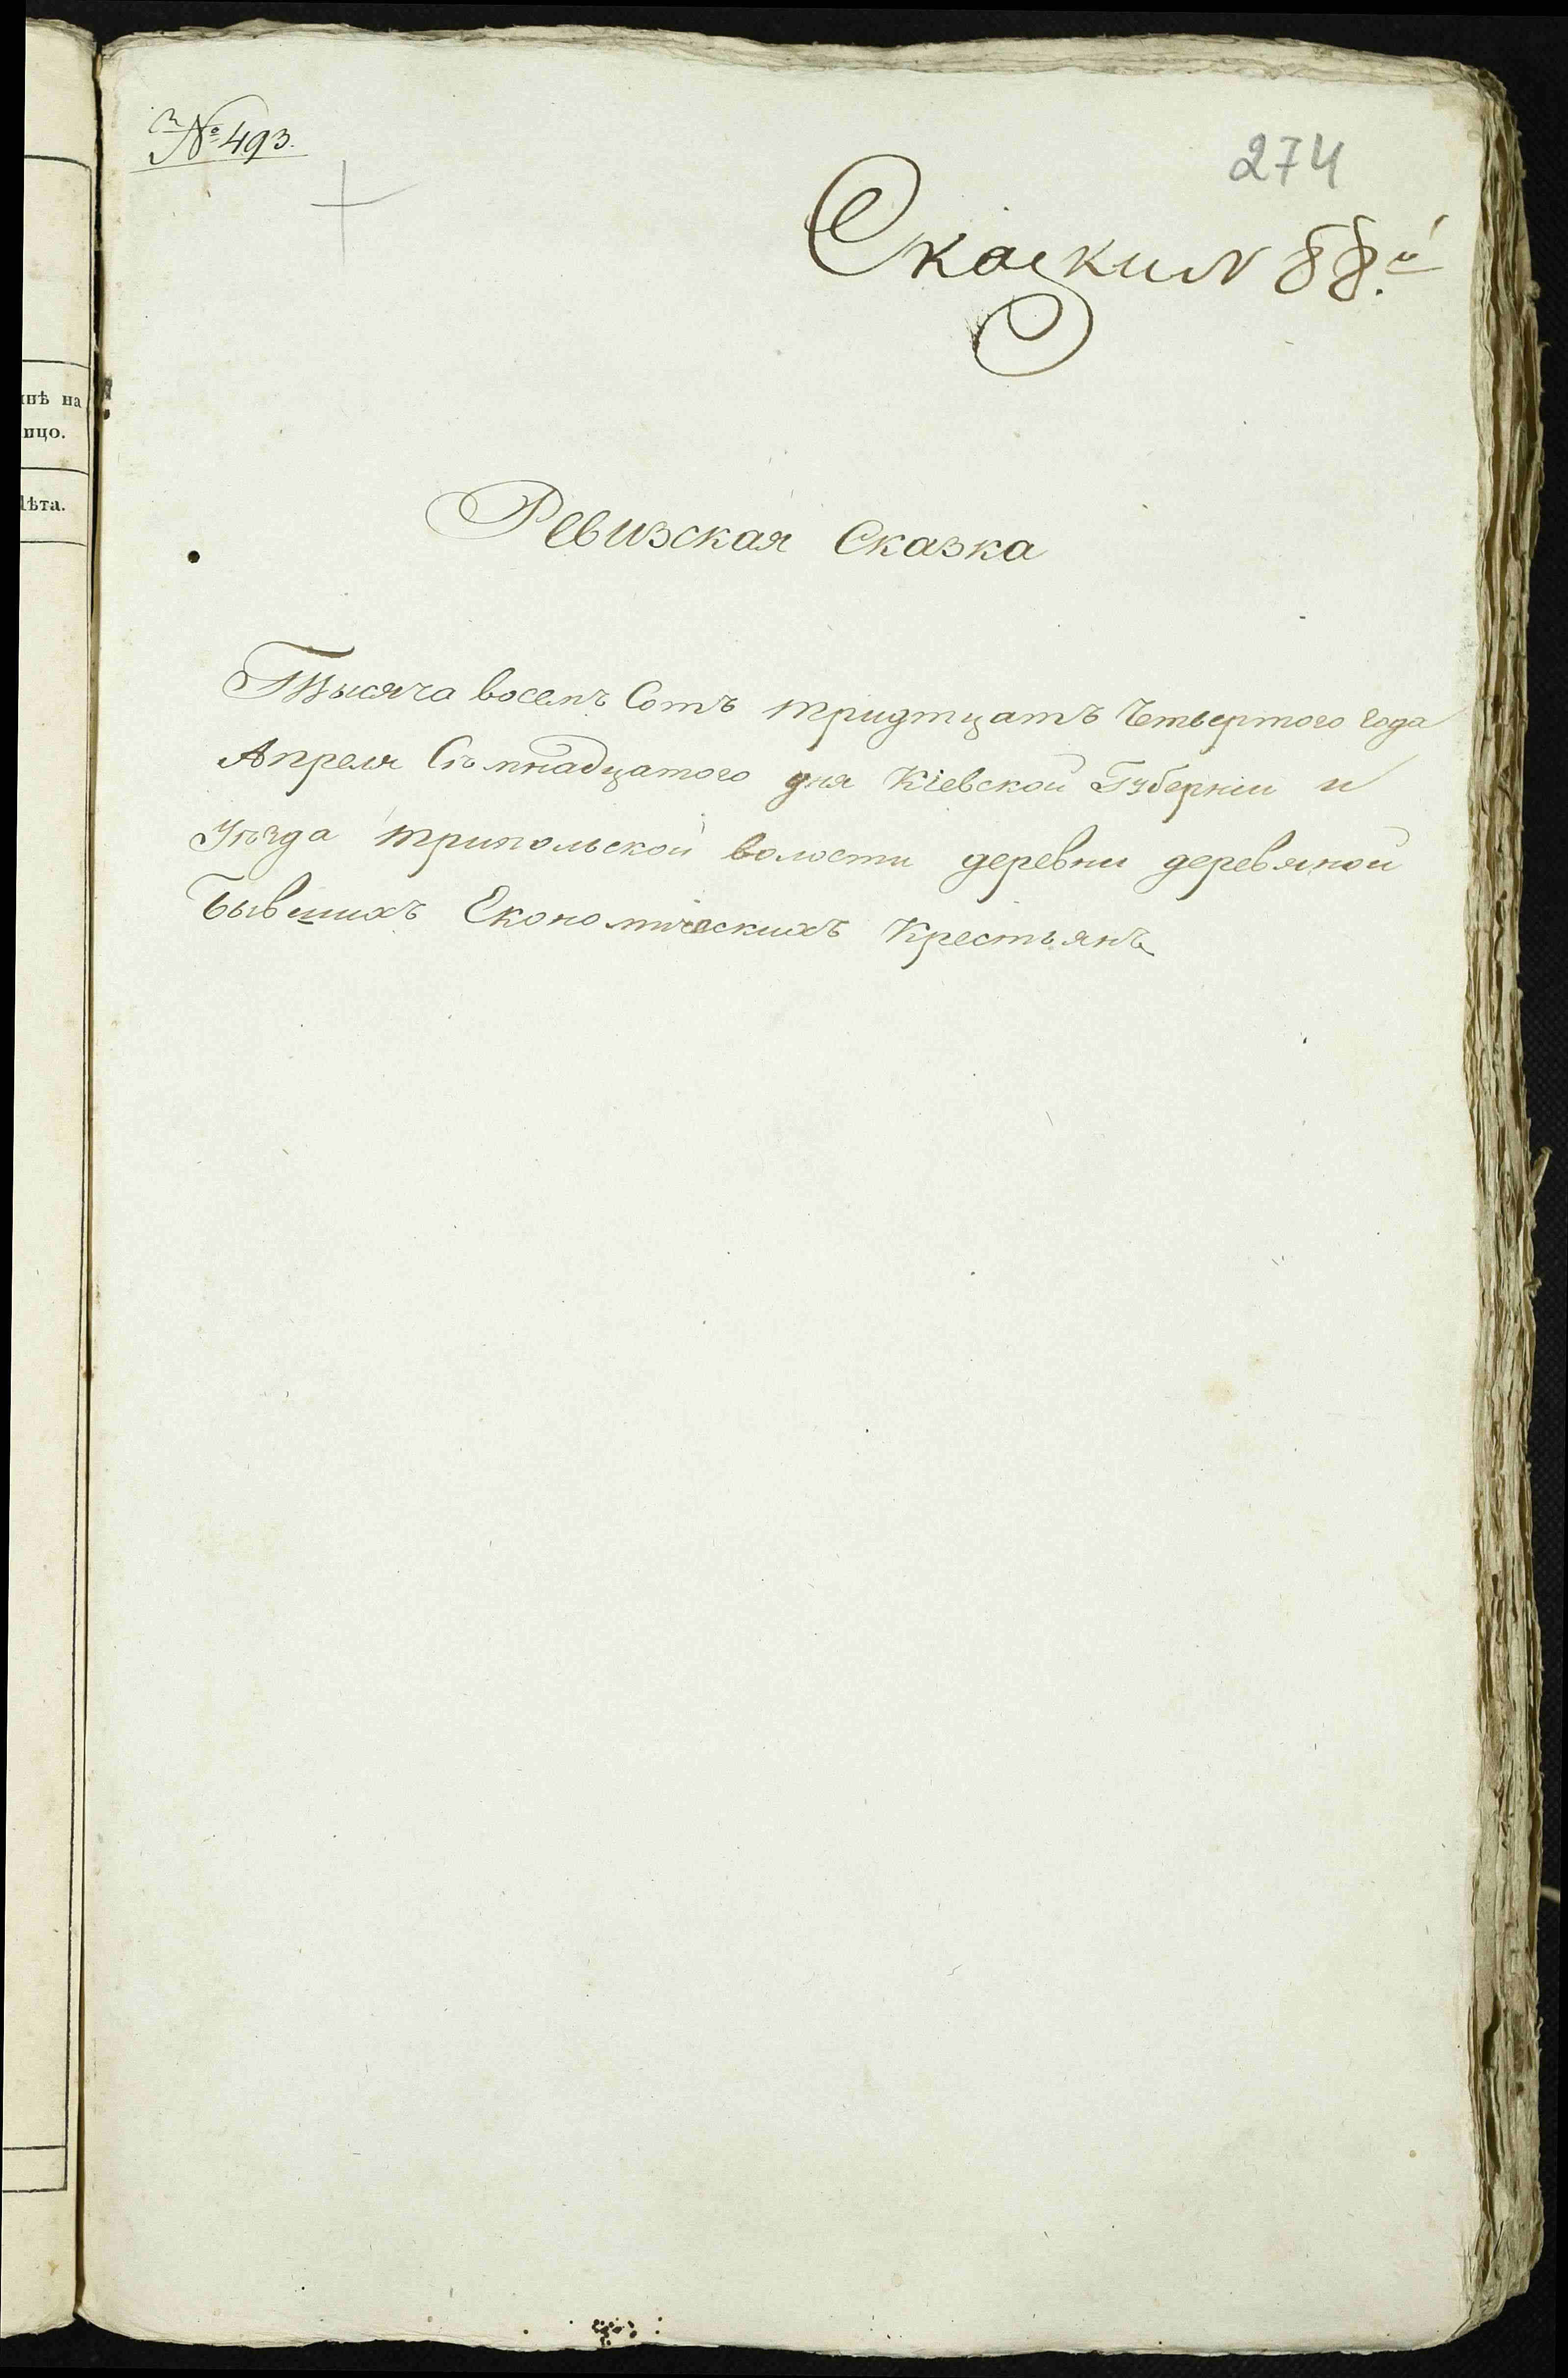 № 493.
274
Сказки N 88й
нѣ на
лицо.
Лѣта.
Ревизская Сказка
Тысяча восемъ Сотъ тридтцатъ Четвертого года
Апреля Съмнадцатого дня Кіевской Губерніи и
Уѣзда трипольской волости деревни деревяной
Бывшихъ Економическихъ Крестьянъ